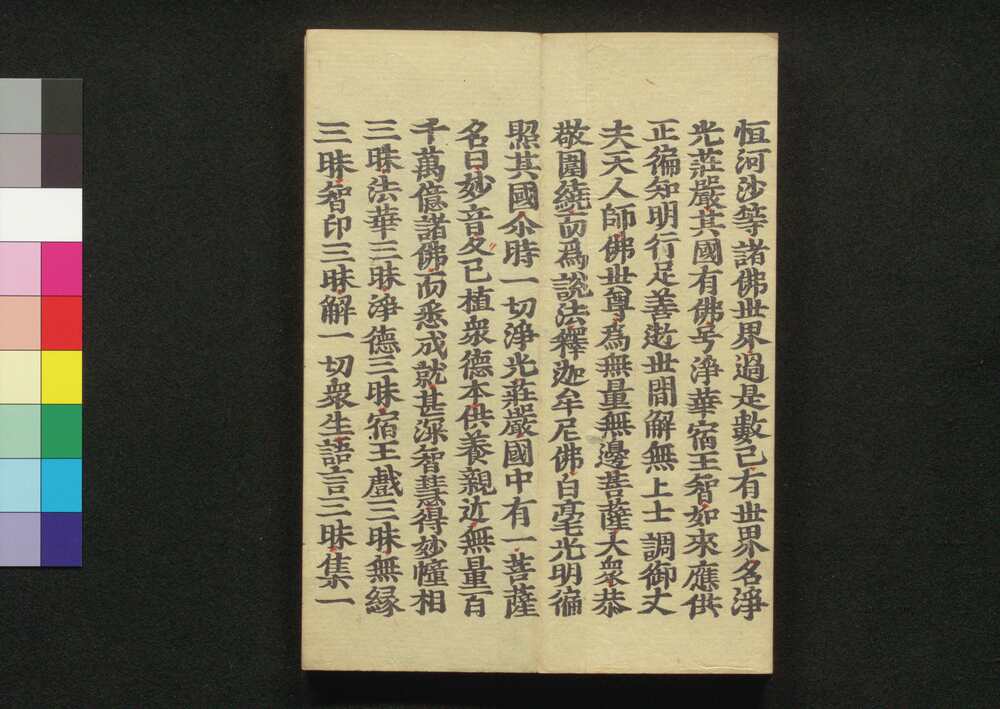 恒河沙等諸佛世界過是數已有世界名淨
光莊嚴其國有佛号淨華宿王智如來應供
正徧知明行足善逝世間解無上士調御丈
夫天人師佛世尊為無量無邊菩薩大衆恭
敬圍繞而爲說法釋迦牟尼佛白毫光明徧
照其國尒時一切淨光莊嚴國中有一菩薩
名曰妙音久已植衆德本供養親近無量百
千萬億諸佛而悉成就甚深智慧得妙幢相
三昧法華三昧淨德三昧宿王戲三昧無緣
三昧智印三昧解一切衆生語言三昧集一